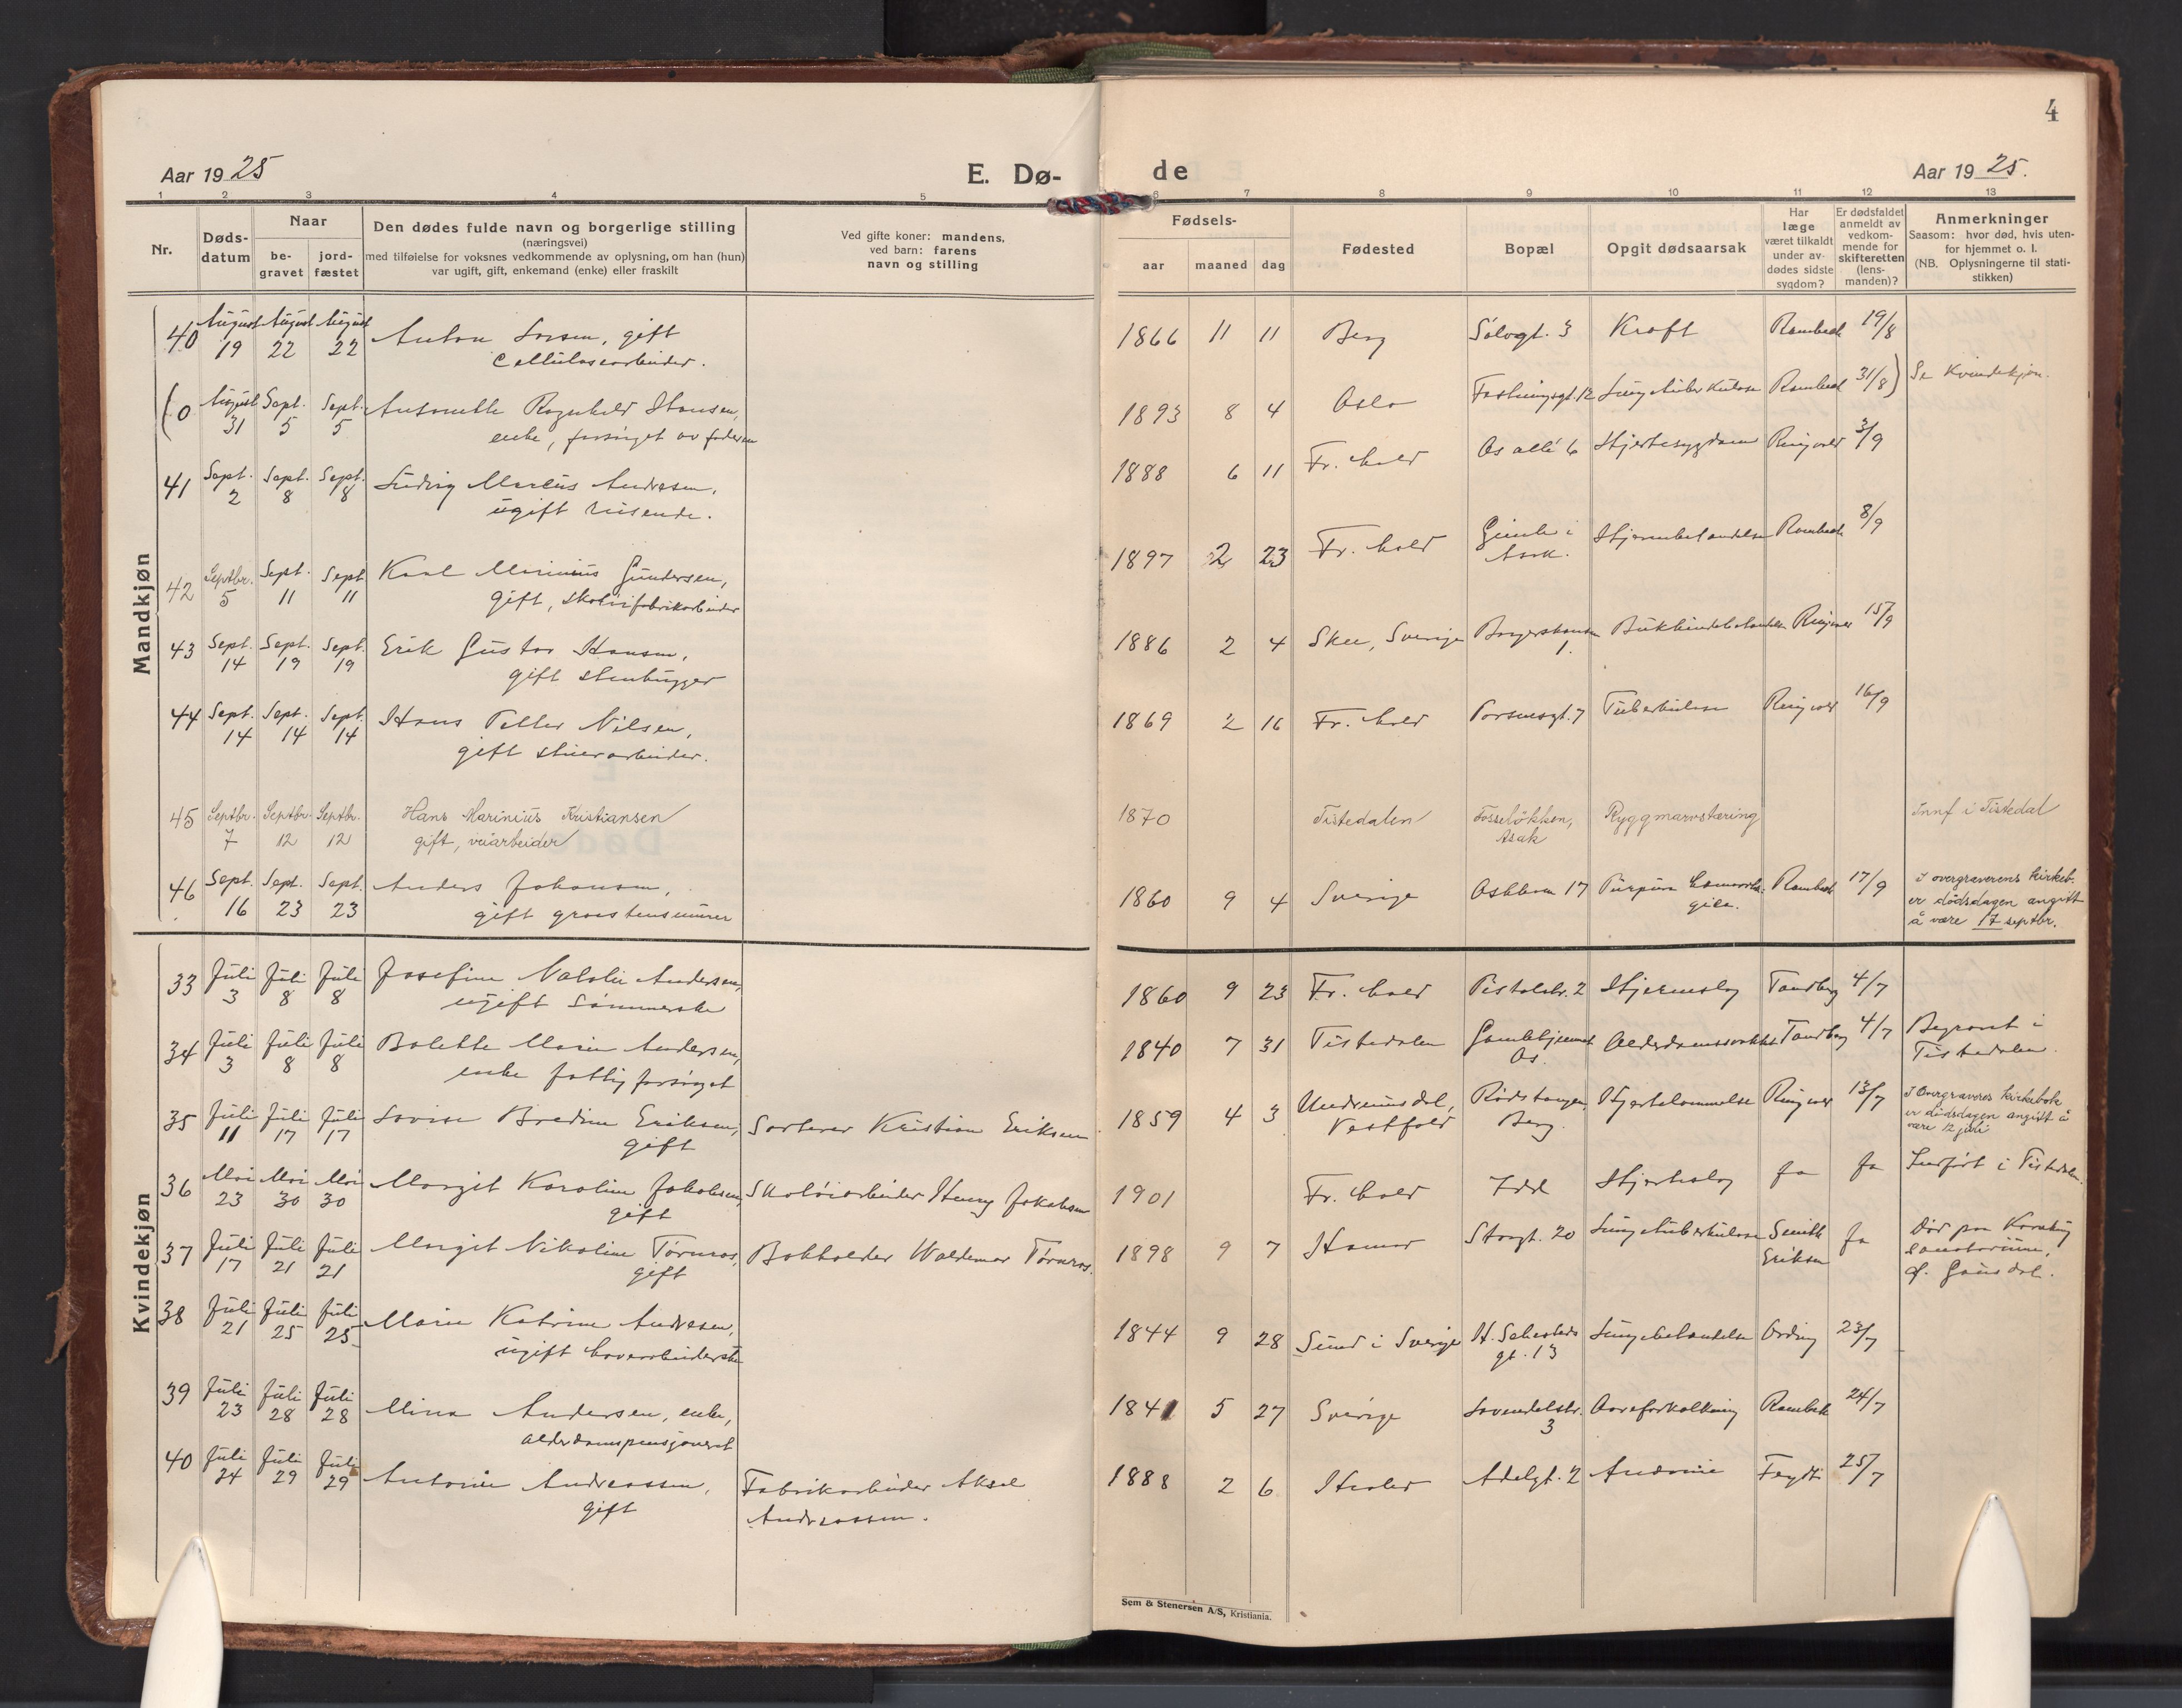 4
Aar 1925
E. Dø-
de
Aar 1925.
1 2 3 4 5 6 7 8 9 10 11 12 13
Nr.
Døds-
datum
Naar
be-
gravet
jord-
fæstet
Den dødes fulde navn og borgerlige stilling
(næringsvei)
med tilføielse for voksnes vedkommende av oplysning, om han (hun)
var ugift, gift, enkemand (enke) eller fraskilt
Ved gifte koner: mandens,
ved barn: farens
navn og stilling
Fødsels-
aar
maaned
dag
Fødested
Bopæl
Opgit dødsaarsak
Har
læge
været tilkaldt
under av-
dødes sidste
sygdom?
Er dødsfaldet
anmeldt av
vedkom-
mende for
skifteretten
(lens-
manden)?
Anmerkninger
Saasom: hvor død, hvis uten-
for hjemmet o. l.
(NB. Oplysningerne til stati-
stikken)
Mandkjøn
40 August 19 August 22 August 22 Anton gift 1866 11 11 Berg Sølvgt. 3 Kræft Rambech 19/8
Cellulosearbeider.
(0 August 31 Sept. 5 Sept. 5 Antonette Ragnhild Hansen, 1893 8 4 Oslo Fæstningsgt. 12 Lungetuberkulose Rambech 31/8) Se Kvindekjøn.
enke, forsørget av faderen
41 Sept. 2 Sept. 8 Sept. 8 Ludvig Marius Andresen, 1888 6 11 Fr.hald Os allé 6 Hjertesygdom Ringvold 3/9
ugift reisende.
42 Septbr. 5 Sept. 11 Sept. 11 Karl Marinius Gundersen, 1897 2 23 Fr.hald i Hjernebetændelse Rambech 8/9
gift, skotøifabrikarbeider
43 Sept. 14 Sept. 19 Sept. 19 Erik Gustav Hansen, 1886 2 4 Skee, Sverige 1. Bukhindebetændelse Ringvold 15/9
gift stenhugger
44 Sept. 14 Sept. 14 Sept. 14 Hans Peller Nilsen, 1869 2 16 Fr.hald 7 Tuberkulose Ringvold 16/9
gift
45 Septbr. 7 Septbr. 12 Septbr. 12 Hans Marinius Kristiansen 1870 Tistedalen Fosseløkken, Asak Ryggmarvstæring Innf i Tistedal
gift, veiarbeider
46 Sept. 16 Sept. 23 Sept. 23 Anders Johansen, 1860 9 4 Sverige 17 Purpura Rambech 17/9 I overgraverens kirkeb.
er dødsdagen angitt
å være 17 septbr.
gift
Kvindekjøn
33 Juli 3 Juli 8 Juli 8 Josefine Natalie Andersen, 1860 9 23 Fr.hald Pistolstr. 2 Hjerneslag Tandberg 4/7
ugift sømmerske
34 Juli 3 Juli 8 Juli 8 Bolette Marie Andersen, 1840 7 31 Tistedalen Gamlehjemmet Os. Alderdomssvakhet Tandberg 4/7 Begravet i
Tistedalen.
enke fattigforsørget
35 Juli 11 Juli 17 Juli 17 Lovise Bredine Eriksen, Sorterer Kristian Eriksen 1859 4 3 Undrumsdal, Vestfold Rødstangen, Berg. Hjertelammelse Ringvold 13/7 I Overgraveres kirkebok
er dødsdagen angitt å
være 12 juli
gift
36 Mai 23 Mai 30 Mai 30 Margit Karoline Jakobsen, Skotøiarbeider Henry Jakobsen 1901 Fr.hald Idd Hjerteslag ja ja Indført i Tistedalen.
gift
37 Juli 17 Juli 21 Juli 21 Margit Nikoline Tørnros, Bokholder Waldemar Tørnros. 1898 9 7 Hamar Storgt. 20 Lungetuberkulose Smith Eriksen ja Død paa Kornhaug
sanatorium,
Ø. Gausdal.
gift
38 Juli 21 Juli 25 Juli 25 Marie Katrine Andresen, 1844 9 28 Sund i Sverige H. Sehesteds gt. 13 Lungebetændelse Ording 23/7
ugift
39 Juli 23 Juli 28 Juli 28 Mina Andersen, enke, 1841 5 27 Sverige 3 Aareforkalkning Rambech 24/7
alderdomspensjonert
40 Juli 24 Juli 29 Juli 29 Antonie Andreassen, Fabrikarbeider Aksel 1888 2 6 Hvaler Adelgt. 2 Anæmie Feydt 25/7
gift Andreassen.
Sem & Stenersen A/S, Kristiania.